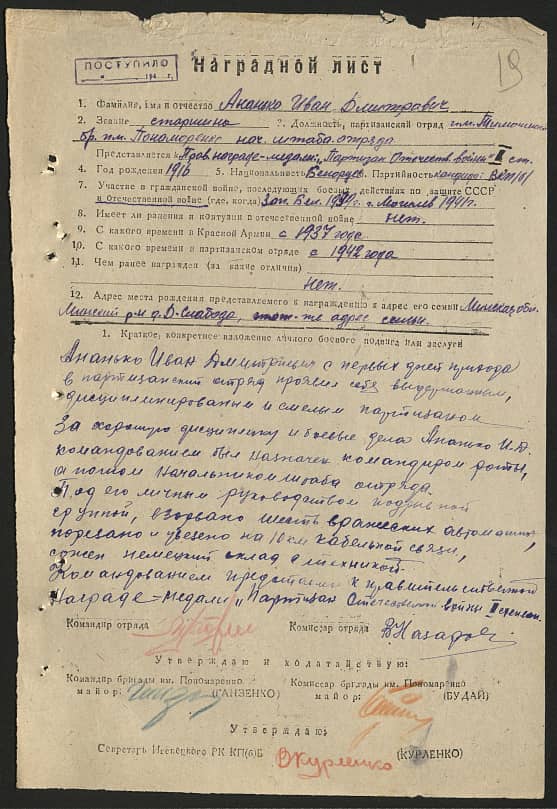 ПОСТУПИЛО
194 г.
19
Наградной лист
1. Фамилия, имя и отчество Ананько Иван Дмитревич
2. Звание старшина 3. Должность, партизанский отряд им. Тимошенко
бр. им. Пономоренко нач. штаба отряда
Представляется к Прав. награде-медали „Партизан Отечеств. войны" II ст.
4. Год рождения 1916 5. Национальность Белорусс. Партийность кандид. ВКП(б)
7. Участие в гражданской войне, последующих боевых действиях по защите СССР
и Отечественной войне (где, когда) Зап. Бел. 1939 г. г. Могилев 1941 г.
8. Имеет ли ранения и контузии в отечественной войне нет.
9. С какого времени в Красной Армии с 1937 года
10. С какого времени в партизанском отряде с 1942 года
11. Чем ранее награжден (за какие отличия)
нет.
12. Адрес места рождения представляемого к награждению и адрес его семьи Минская обл.
Минский р-н д. Д-Слабода, тот-же адрес семьи.
1. Краткое, конкретное изложение личного боевого подвига или заслуги
Ананько Иван Дмитревич с первых дней прихода
в партизанский отряд проявил себя выдержанным,
дисциплинированым и смелым партизаном
За хорошую дисциплину и боевые дела Ананько И.Д.
командованием был назначен командиром роты,
а потом начальником штаба отряда.
Под его личным руководством подрывной
группой, взорвано шесть вражеских автомашин,
порезано и увезено на 10 км кабельной связи,
сожен немецкий склад с техникой.
Командованием представлен к правительственной
награде-медали „Партизан Отечественной войны II степени.
Командир отряда Комиссар отряда В. Назаров
Утверждаю и ходатайствую:
Командир бригады им. Пономаренко Комиссар бригады им. Пономаренко
майор: (ГАНЗЕНКО) майор: (БУДАЙ)
Утверждаю:
Секретарь Ивенецкого РК КП(б)Б В Курленко (КУРЛЕНКО)